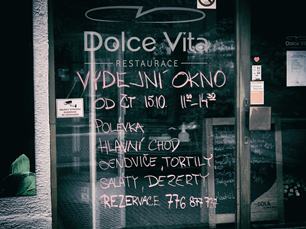 Dolce Vita
RESTAURACE
VÝDEJNÍ OKNO
OD ČT 15.10. 11⁰⁰-14³⁰
POLÉVKA
HLAVNÍ CHOD
SENDVIČE, TORTILLY
SALÁTY, DEZERTY
REZERVACE 776